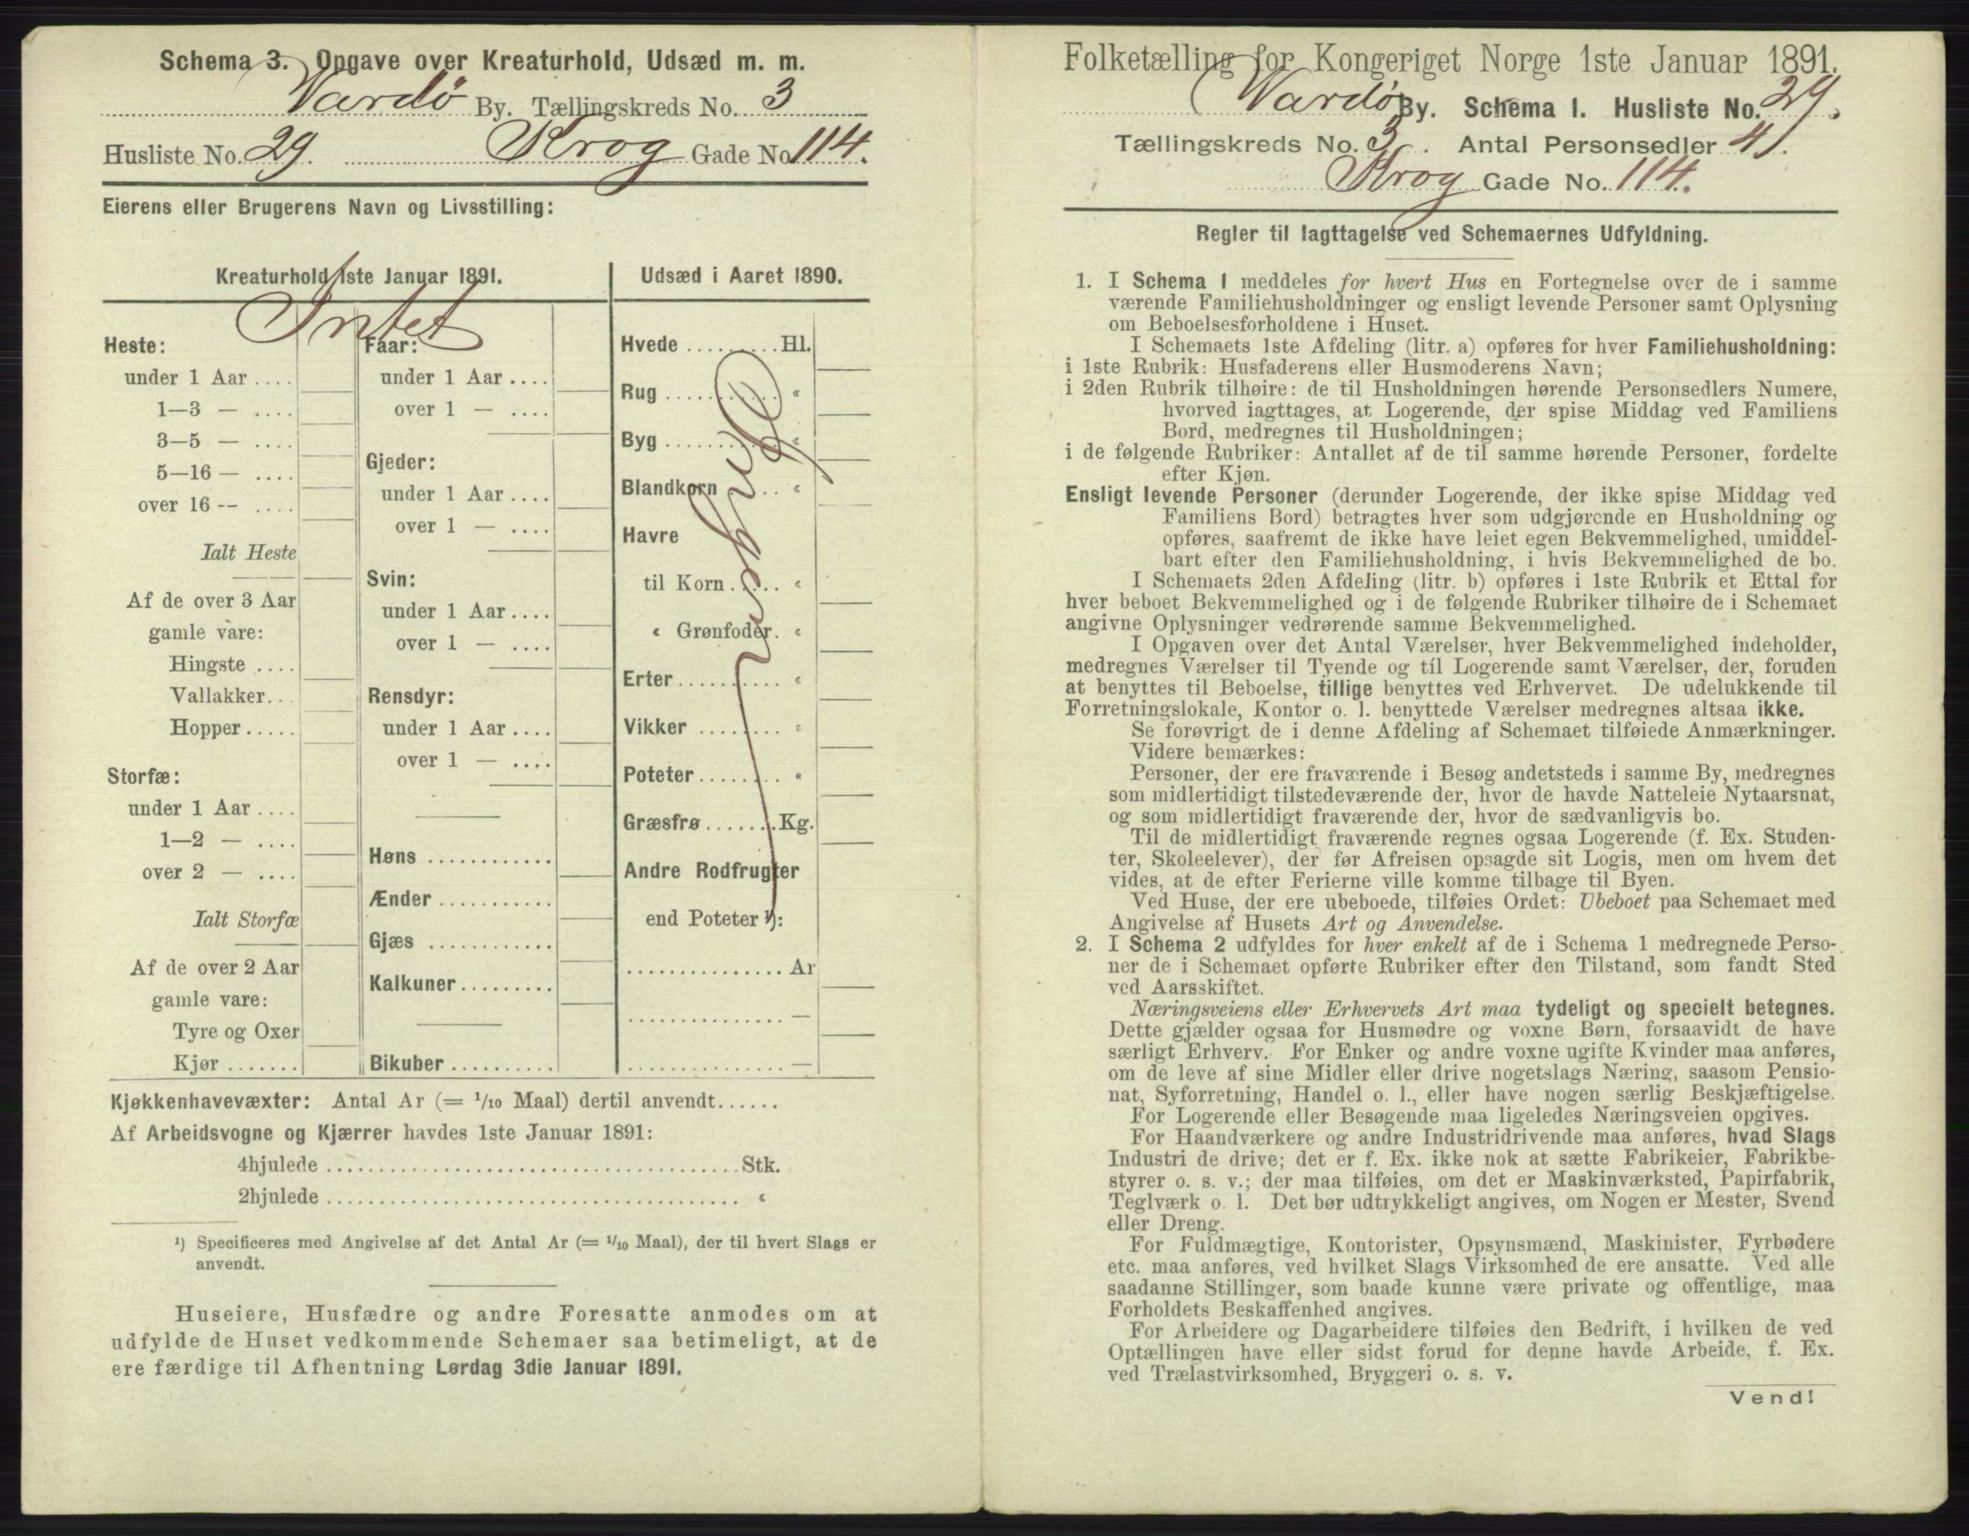 Schema 3. Opgave over Kreaturhold, Udsæd m. m.
Vardø By. Tællingskreds No. 3
Husliste No. 29. Krog Gade No. 114.
Eierens eller Brugerens Navn og Livsstilling:
Kreaturhold 1ste Januar 1891.
Intet
Heste:
under 1 Aar ....
1—3 — ....
3—5 — ....
5—16 — ....
over 16 -- ....
Ialt Heste
Af de over 3 Aar
gamle vare:
Hingste ....
Vallakker...
Hopper.....
Storfæ:
under 1 Aar ....
1—2 — ....
over 2 — ....
Ialt Storfæ
Af de over 2 Aar
gamle vare:
Tyre og Oxer
Kjør .......
Faar:
under 1 Aar ....
over 1 — ....
Gjeder:
under 1 Aar ....
over 1 — ....
Svin:
under 1 Aar ....
over 1 — ....
Rensdyr:
under 1 Aar ....
over 1 — ....
Høns ............
Ænder ...........
Gjæs ............
Kalkuner.........
Bikuber ..........
Udsæd i Aaret 1890.
Hvede .........Hl.
Rug ........... «
Byg ........... «
Blandkorn .... «
Havre
til Korn ..... «
« Grønfoder. «
Erter.......... «
Vikker ........ «
Poteter........ «
Græsfrø.......Kg.
Andre Rodfrugter
end Poteter ¹):
...............Ar
............... —
............... —
Kjøkkenhavevæxter: Antal Ar (= 1/10 Maal) dertil anvendt......
Af Arbeidsvogne og Kjærrer havdes 1ste Januar 1891:
4hjulede ......................................Stk.
2hjulede ...................................... «
¹) Specificeres med Angivelse af det Antal Ar (= 1/10 Maal), der til hvert Slags er
anvendt.
Huseiere, Husfædre og andre Foresatte anmodes om at
udfylde de Huset vedkommende Schemaer saa betimeligt, at de
ere færdige til Afhentning Lørdag 3die Januar 1891.
Folketælling for Kongeriget Norge 1ste Januar 1891.
Vardø By. Schema 1. Husliste No. 29.
Tællingskreds No. 3. Antal Personsedler 4.
Krog Gade No. 114.
Regler til Iagttagelse ved Schemaernes Udfyldning.
1. I Schema 1 meddeles for hvert Hus en Fortegnelse over de i samme
værende Familiehusholdninger og ensligt levende Personer samt Oplysning
om Beboelsesforholdene i Huset.
I Schemaets 1ste Afdeling (litr. a) opføres for hver Familiehusholdning:
i 1ste Rubrik: Husfaderens eller Husmoderens Navn;
i 2den Rubrik tilhøire: de til Husholdningen hørende Personsedlers Numere,
hvorved iagttages, at Logerende, der spise Middag ved Familiens
Bord, medregnes til Husholdningen;
i de følgende Rubriker: Antallet af de til samme hørende Personer, fordelte
efter Kjøn.
Ensligt levende Personer (derunder Logerende, der ikke spise Middag ved
Familiens Bord) betragtes hver som udgjørende en Husholdning og
opføres, saafremt de ikke have leiet egen Bekvemmelighed, umiddel-
bart efter den Familiehusholdning, i hvis Bekvemmelighed de bo.
I Schemaets 2den Afdeling (litr. b) opføres i 1ste Rubrik et Ettal for
hver beboet Bekvemmelighed og i de følgende Rubriker tilhøire de i Schemaet
angivne Oplysninger vedrørende samme Bekvemmelighed.
I Opgaven over det Antal Værelser, hver Bekvemmelighed indeholder,
medregnes Værelser til Tyende og til Logerende samt Værelser, der, foruden
at benyttes til Beboelse, tillige benyttes ved Erhvervet. De udelukkende til
Forretningslokale, Kontor o. l. benyttede Værelser medregnes altsaa ikke.
Se forøvrigt de i denne Afdeling af Schemaet tilføiede Anmærkninger.
Videre bemærkes:
Personer, der ere fraværende i Besøg andetsteds i samme By, medregnes
som midlertidigt tilstedeværende der, hvor de havde Natteleie Nytaarsnat,
og som midlertidigt fraværende der, hvor de sædvanligvis bo.
Til de midlertidigt fraværende regnes ogsaa Logerende (f. Ex. Studen-
ter, Skoleelever), der før Afreisen opsagde sit Logis, men om hvem det
vides, at de efter Ferierne ville komme tilbage til Byen.
Ved Huse, der ere ubeboede, tilføies Ordet: Ubeboet paa Schemaet med
Angivelse af Husets Art og Anvendelse.
2. I Schema 2 udfyldes for hver enkelt af de i Schema 1 medregnede Perso-
ner de i Schemaet opførte Rubriker efter den Tilstand, som fandt Sted
ved Aarsskiftet.
Næringsveiens eller Erhvervets Art maa tydeligt og specielt betegnes.
Dette gjælder ogsaa for Husmødre og voxne Børn, forsaavidt de have
særligt Erhverv. For Enker og andre voxne ugifte Kvinder maa anføres,
om de leve af sine Midler eller drive nogetslags Næring, saasom Pensio-
nat, Syforretning, Handel o. l., eller have nogen særlig Beskjæftigelse.
For Logerende eller Besøgende maa ligeledes Næringsveien opgives.
For Haandværkere og andre Industridrivende maa anføres, hvad Slags
Industri de drive; det er f. Ex. ikke nok at sætte Fabrikeier, Fabrikbe-
styrer o. s. v.; der maa tilføies, om det er Maskinværksted, Papirfabrik,
Teglværk o. l. Det bør udtrykkeligt angives, om Nogen er Mester, Svend
eller Dreng.
For Fuldmægtige, Kontorister, Opsynsmænd, Maskinister, Fyrbødere
etc. maa anføres, ved hvilket Slags Virksomhed de ere ansatte. Ved alle
saadanne Stillinger, som baade kunne være private og offentlige, maa
Forholdets Beskaffenhed angives.
For Arbeidere og Dagarbeidere tilføies den Bedrift, i hvilken de ved
Optællingen have eller sidst forud for denne havde Arbeide, f. Ex.
ved Trælastvirksomhed, Bryggeri o. s. v.
Vend!